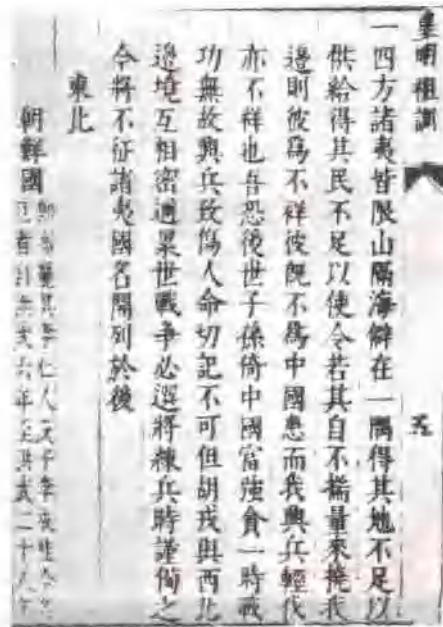 皇明祖訓
五
一四方諸夷皆限山隔海僻在一隅得其地不足以
供給得其民不足以使令若其自不揣量來撓我
邊則彼爲不祥彼旣不爲中國患而我興兵輕伐
亦不祥也吾恐後世子孫倚中國富強貪一時戰
功無故興兵致傷人命切記不可但胡戎與西北
邊境互相密邇累世戰爭必選將練兵時謹備之
今將不征諸夷國名開列於後
東北
朝鮮國